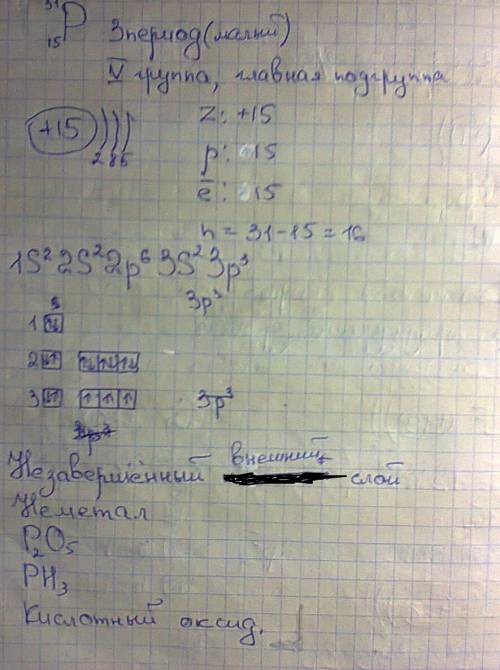 31
15 P 3 период (малый)
V группа, главная подгруппа
+15 ))) Z: +15
2 8 5 p: 15
ē: 15
n = 31-15 = 16
1S² 2S² 2p⁶ 3S² 3p³
3p³
s
1 ↑↓
2 ↑↓ ↑↓ ↑↓ ↑↓
3 ↑↓ ↑ ↑ ↑ 3p³
внешний
Незавершённый слой
Неметал
P₂O₅
PH₃
Кислотный оксид.